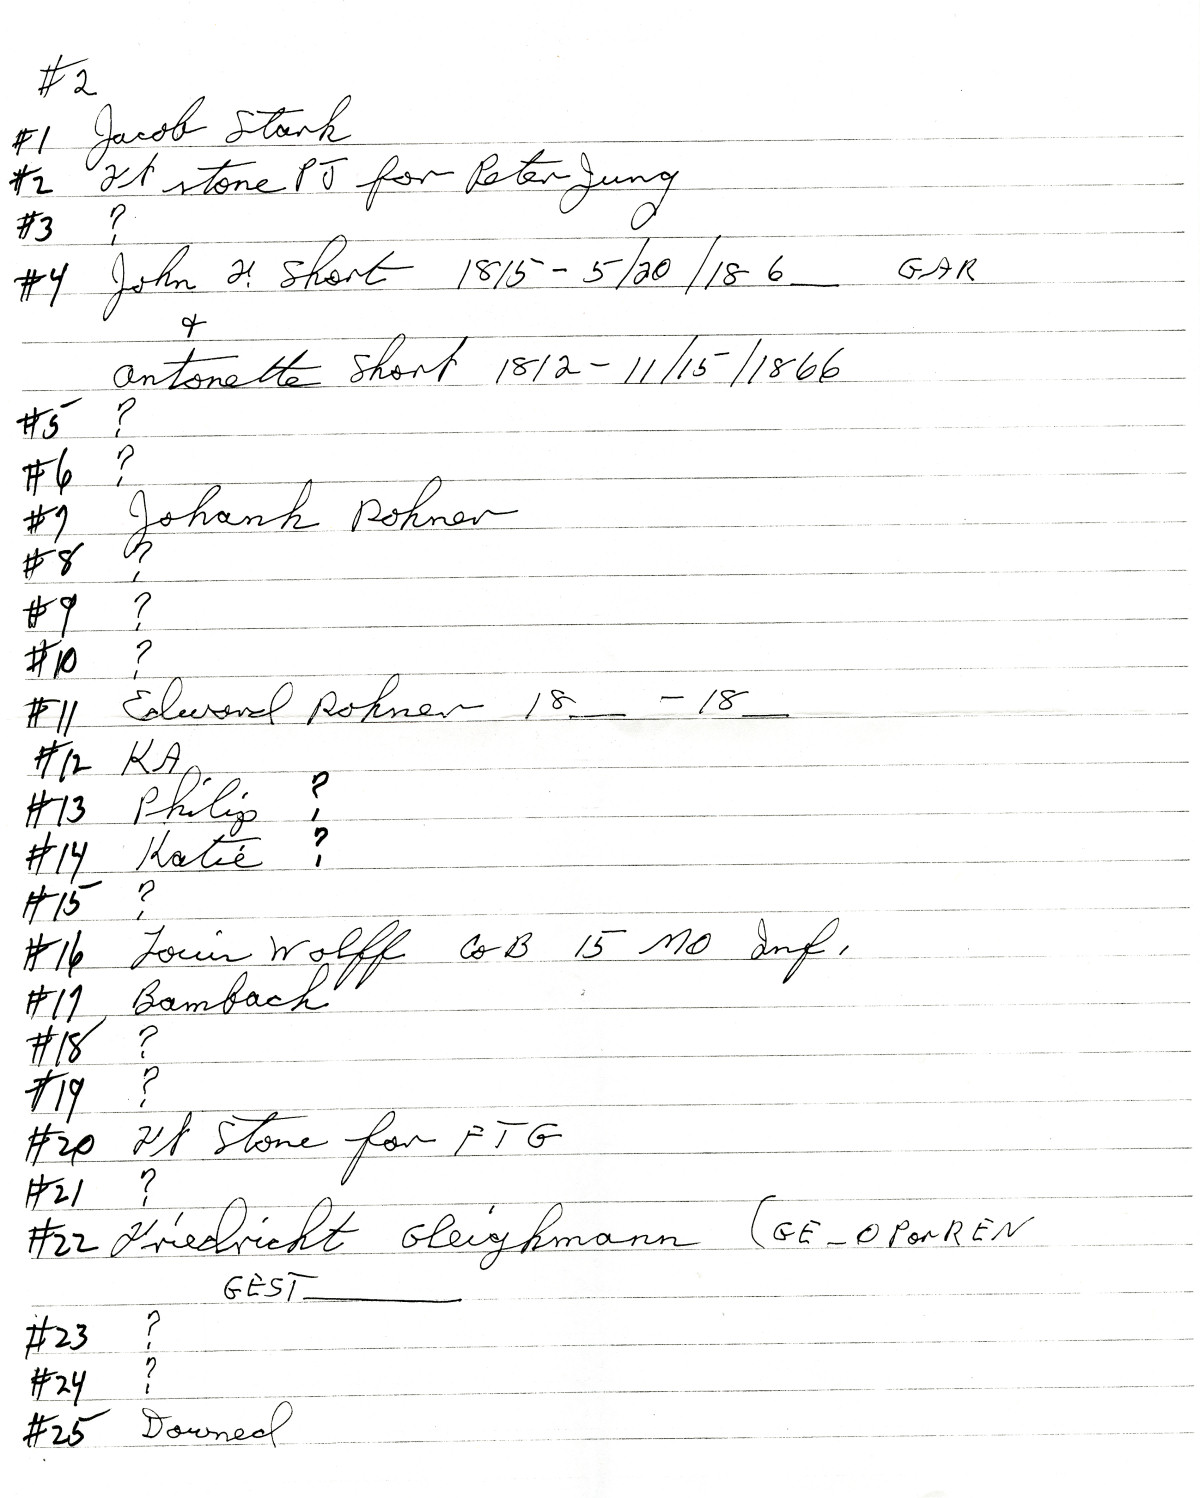 #2
#1 Jacob Stark
#2 Ft stone PJ for Peter Jung
#3 ?
#4 John F. Short 1815 - 5/20/186__ GAR
&
Antonette Short 1812 - 11/15/1866
#5 ?
#6 ?
#7 Johank Rohner
#8 ?
#9 ?
#10 ?
#11 Edward Rohner 18__ - 18__
#12 KA
#13 Philip ?
#14 Katie ?
#15 ?
#16 Louis Wolff Co B 15 MO Inf.
#17 Bambach
#18 ?
#19 ?
#20 Ft Stone for FTG
#21 ?
#22 Friedricht Gleighmann (GE_O P or REN
GEST______
#23 ?
#24 ?
#25 Downed